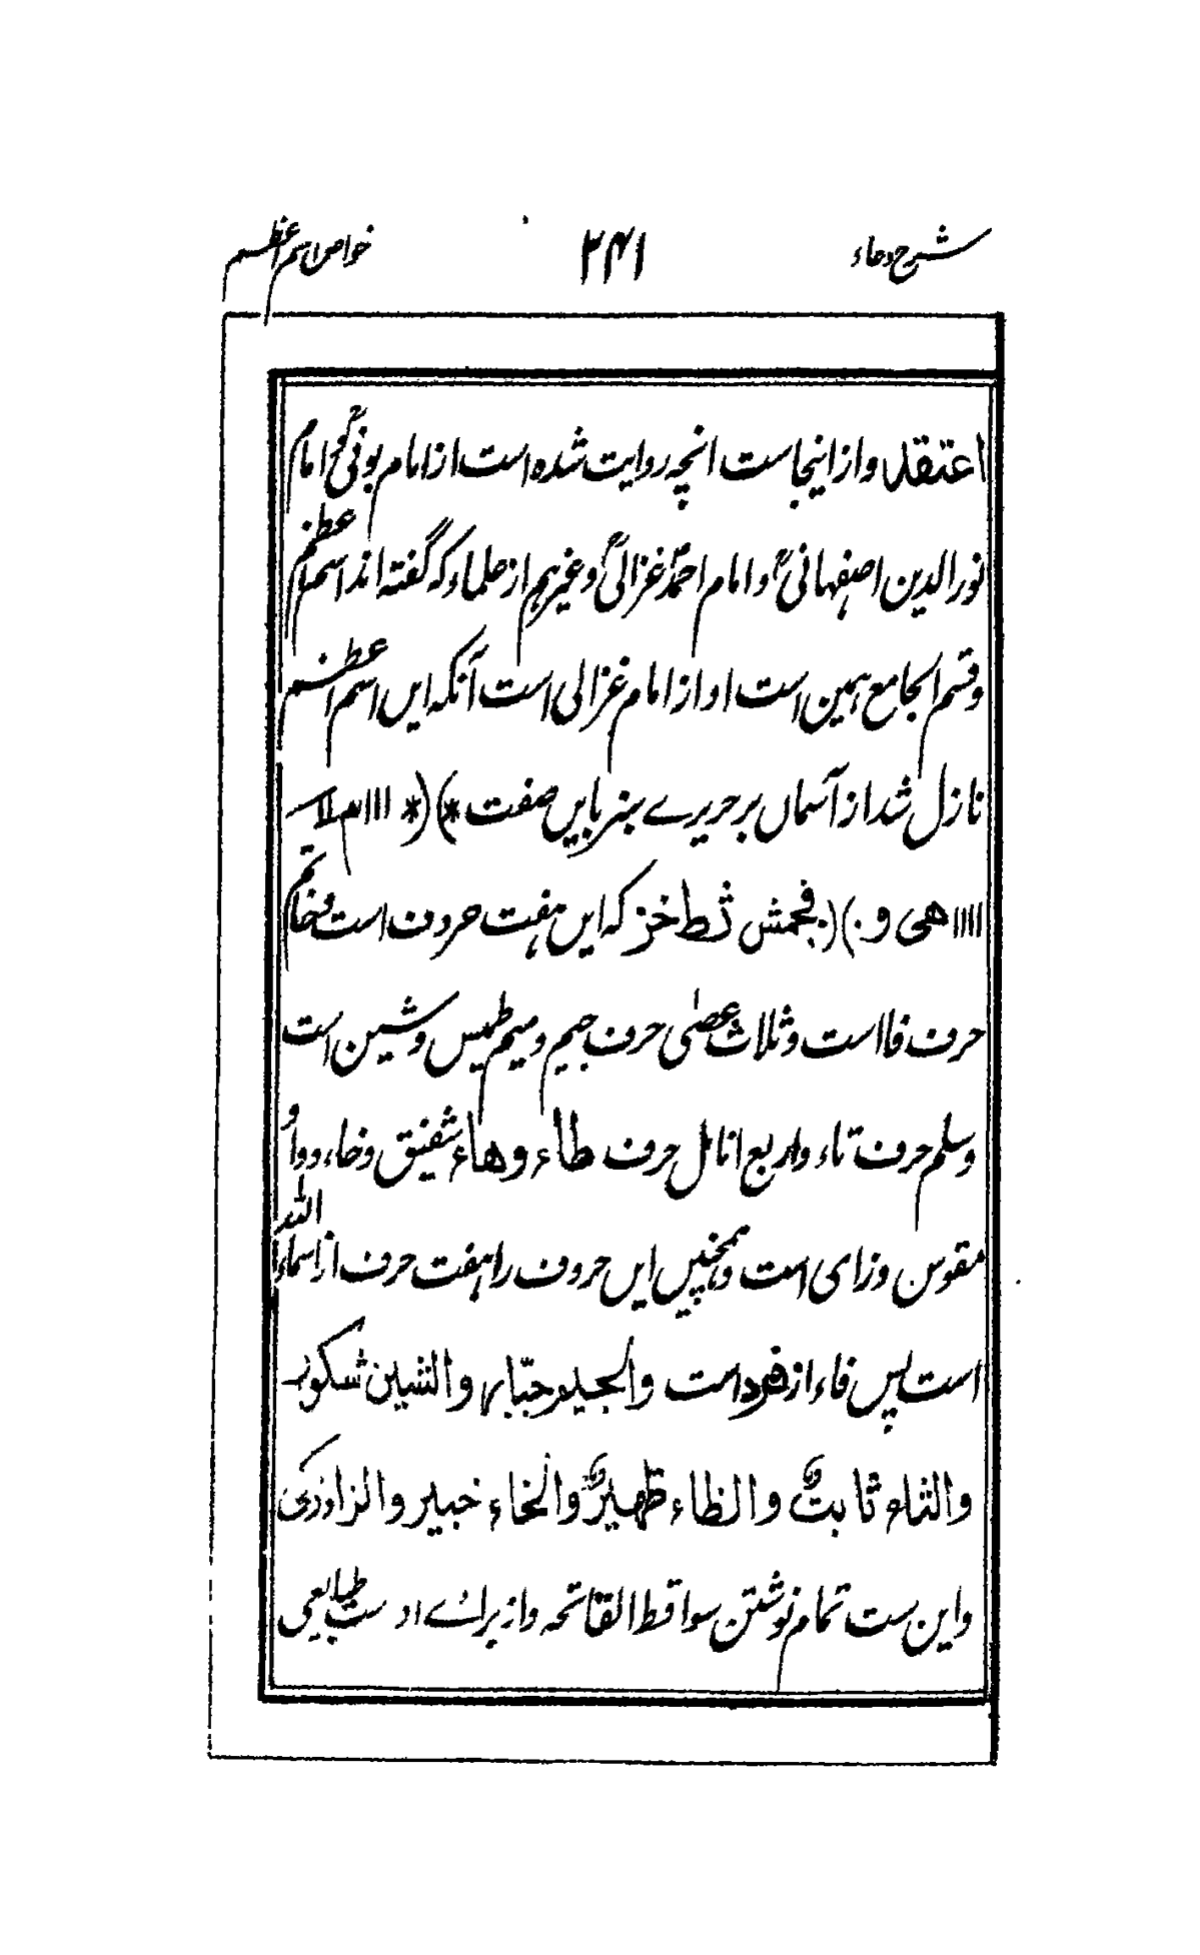 شرح دعاء ۲۴۱ خواص اسم اعظم
اعتقد و از اینجاست انچه روایت شده است از امام بونیؒ و امام
نورالدین اصفهانیؒ و امام احمد غزالیؒ و غیرہم از علماء که گفته اند اسم اعظم
و قسم الجامع ہمین است او از امام غزالی است آنکه ایں اسم اعظم
نازل شد از آسماں بر حریرے سبز بایں صفت *)(* ااا م
اااا هی و ·)(· فجمش ثظ خز که ایں ہفت حروف است و خاتم
حرف فا است و ثلاث عصیٰ حرف جیم و میم طمیس و شین است
و سلم حرف ثاء و اربع انامل حرف ظاء و هاء شفیق و خاء و واو
مقوس و زای است و ہمچنیں ایں حروف را ہفت حرف از اسماء اللہ
است پس فاء از فرد است والجیم جبّار والشین شکور
والثاء ثابتٌ والظاء ظهیرٌ والخاء خبیر والزاء زکی
و این ست تمام نوشتن سواقط الفاتحه و از براے او ست طبایعی